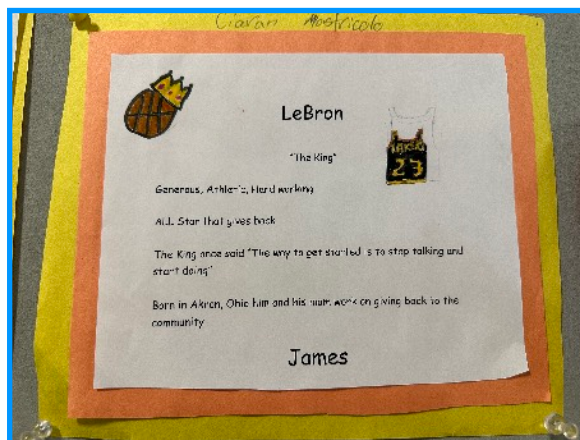 Ciaran Mastricolo
LeBron
"The King"
LAKERS
23
Generous, Athletic, Hard working
All Star that gives back
The King once said "The way to get started is to stop talking and
start doing"
Born in Akron, Ohio him and his mum work on giving back to the
community
James